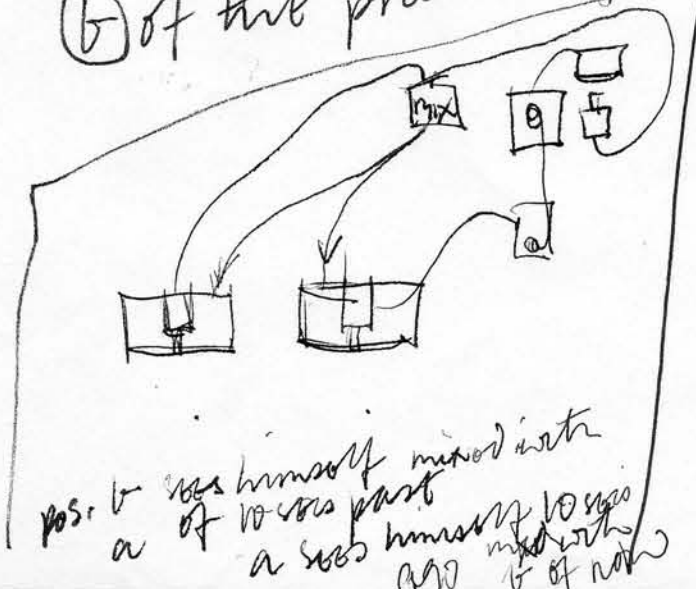 (b) of that
mix
pos. b sees himself mixed with
a of 10 secs past
a sees himself 10 secs
ago mixed with
b of now